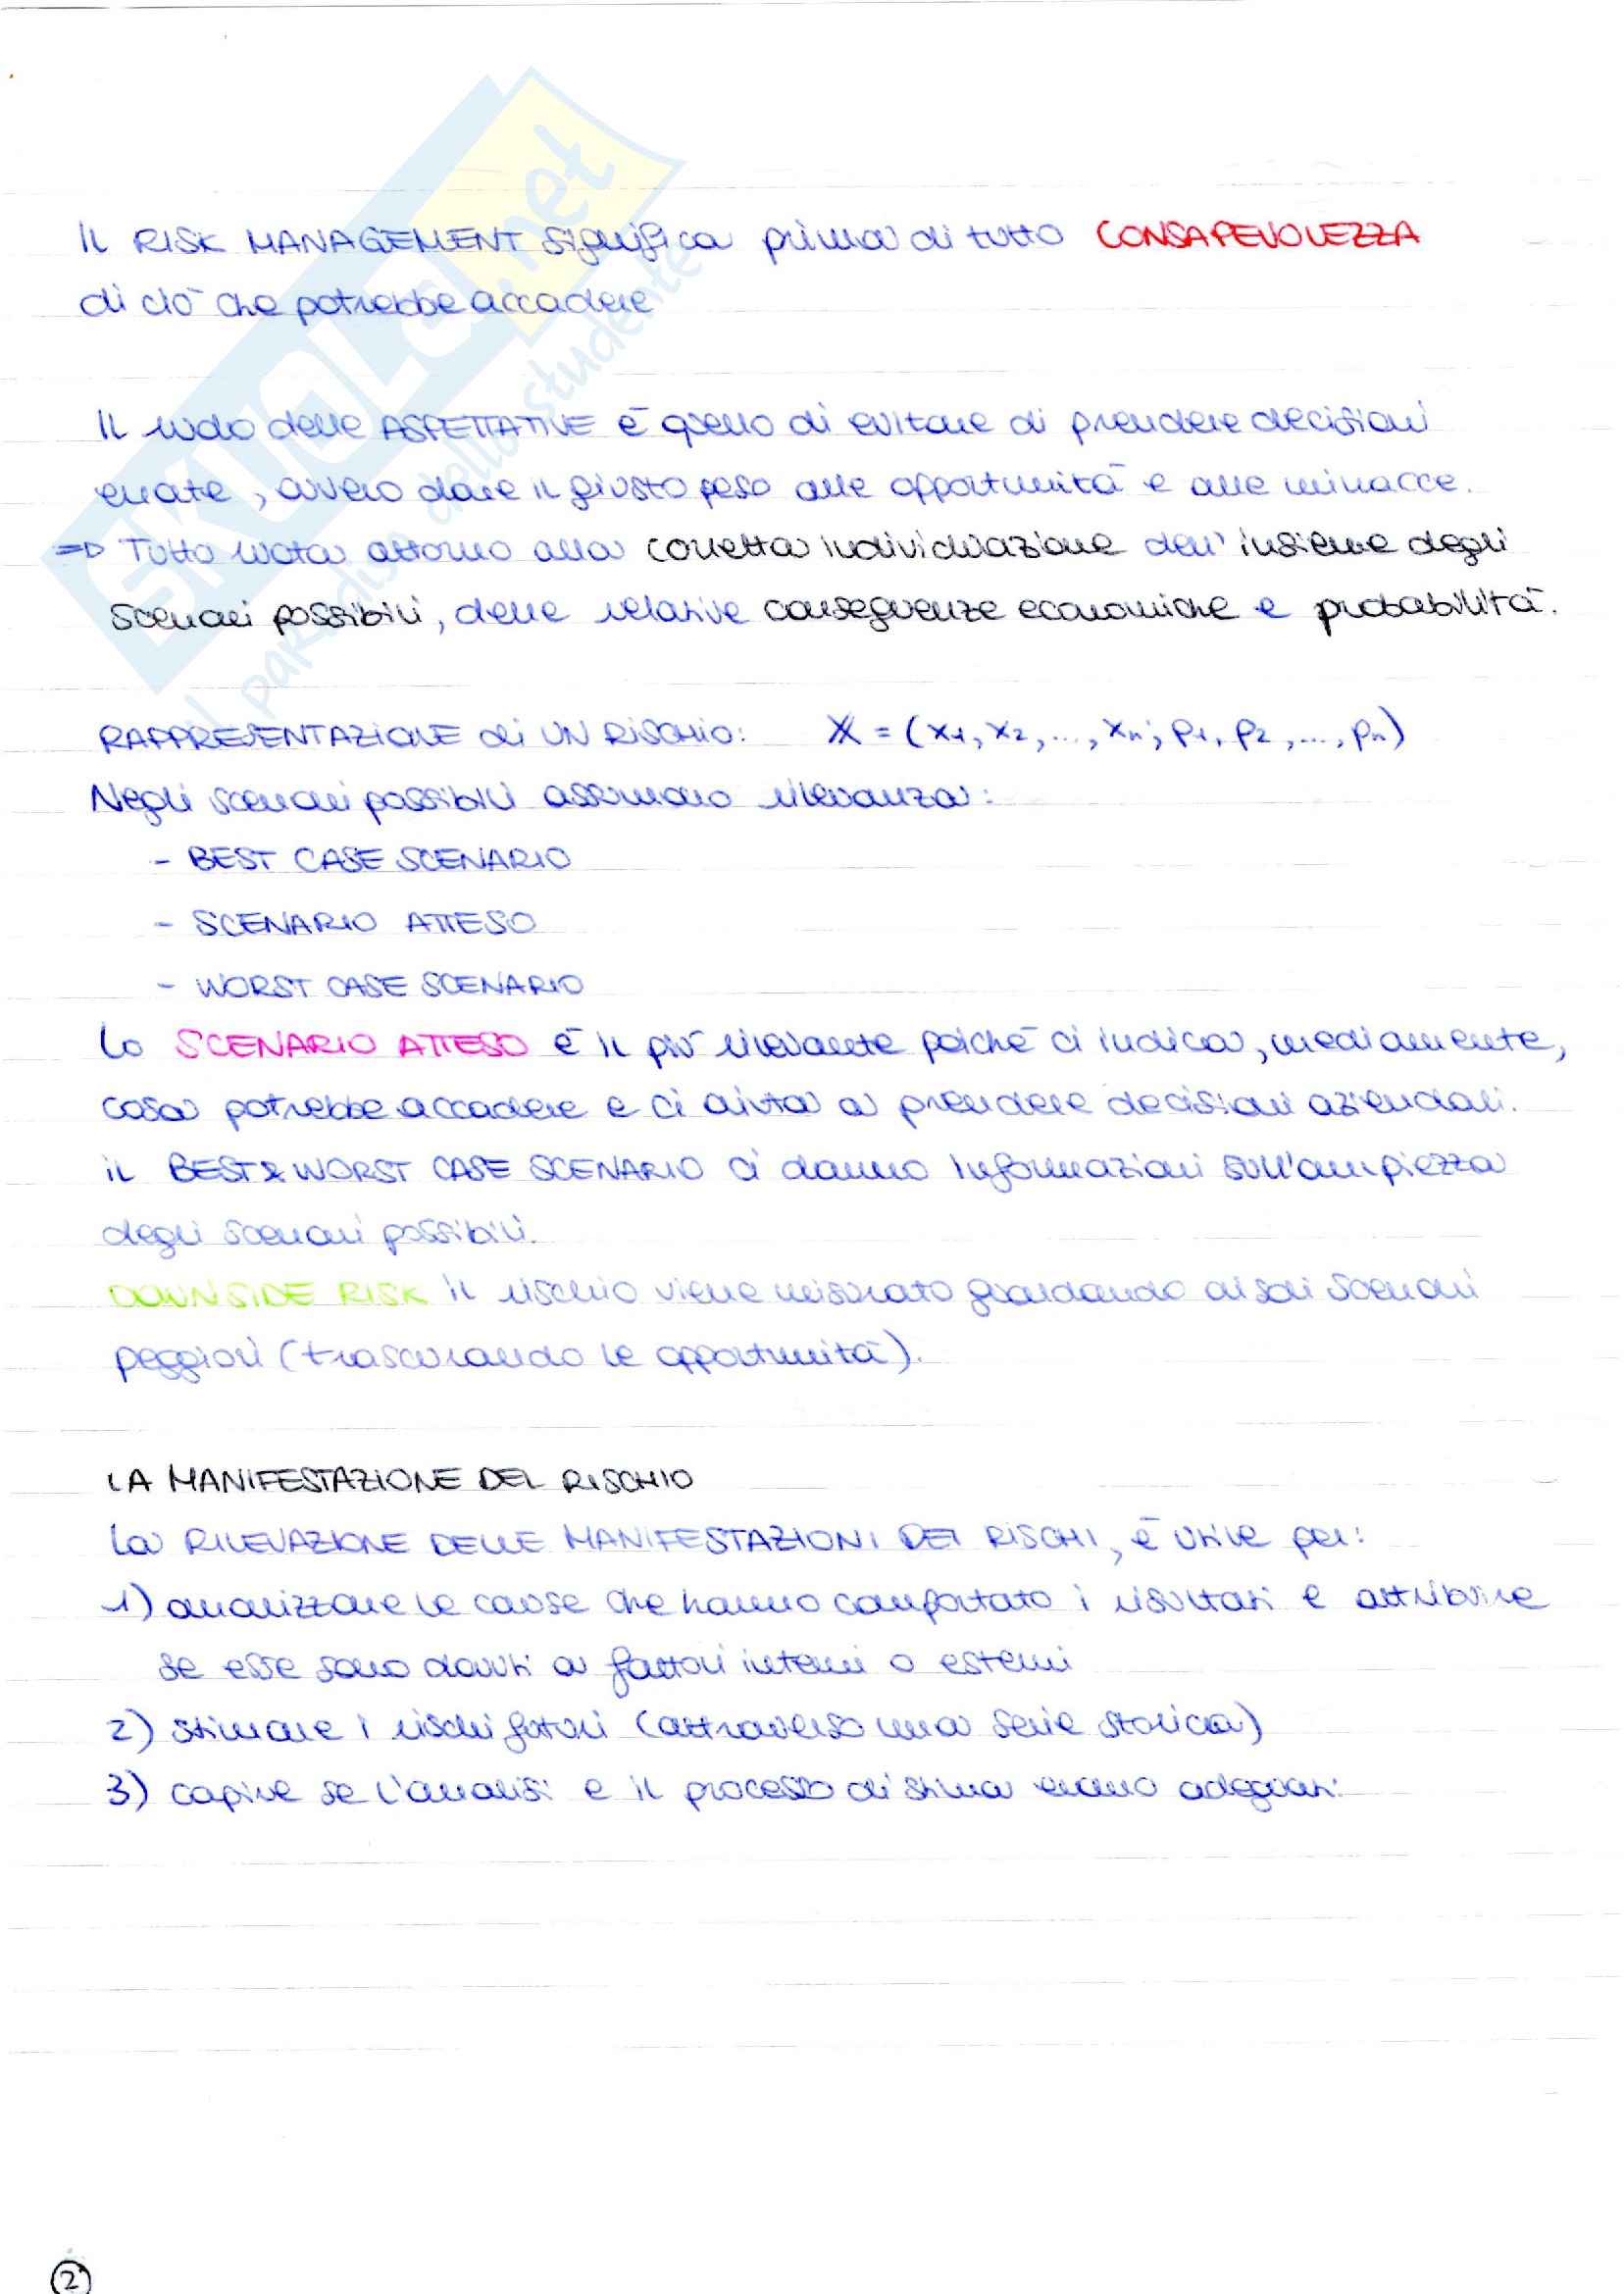 IL RISK MANAGEMENT significa prima di tutto CONSAPEVOLEZZA
di ciò che potrebbe accadere
Il ruolo delle ASPETTATIVE è quello di evitare di prendere decisioni
errate, ovvero dare il giusto peso alle opportunità e alle minacce.
=> Tutto ruota attorno alla corretta individuazione dell'insieme degli
scenari possibili, delle relative conseguenze economiche e probabilità.
RAPPRESENTAZIONE di UN RISCHIO: X = (x1, x2, ..., xn; p1, p2, ..., pn)
Negli scenari possibili assumono rilevanza:
- BEST CASE SCENARIO
- SCENARIO ATTESO
- WORST CASE SCENARIO
Lo SCENARIO ATTESO è il più rilevante poiché ci indica, mediamente,
cosa potrebbe accadere e ci aiuta a prendere decisioni aziendali.
il BEST & WORST CASE SCENARIO ci danno informazioni sull'ampiezza
degli scenari possibili.
DOWNSIDE RISK il rischio viene misurato guardando ai soli scenari
peggiori (trascurando le opportunità).
LA MANIFESTAZIONE DEL RISCHIO
La RILEVAZIONE DELLE MANIFESTAZIONI DEI RISCHI, è utile per:
1) analizzare le cause che hanno comportato i risultati e attribuire
se esse sono dovuti a fattori interni o esterni
2) stimare i rischi futuri (attraverso una serie storica)
3) capire se l'analisi e il processo di stima erano adeguati
2
SKUOLA.net
il paradiso dello studente